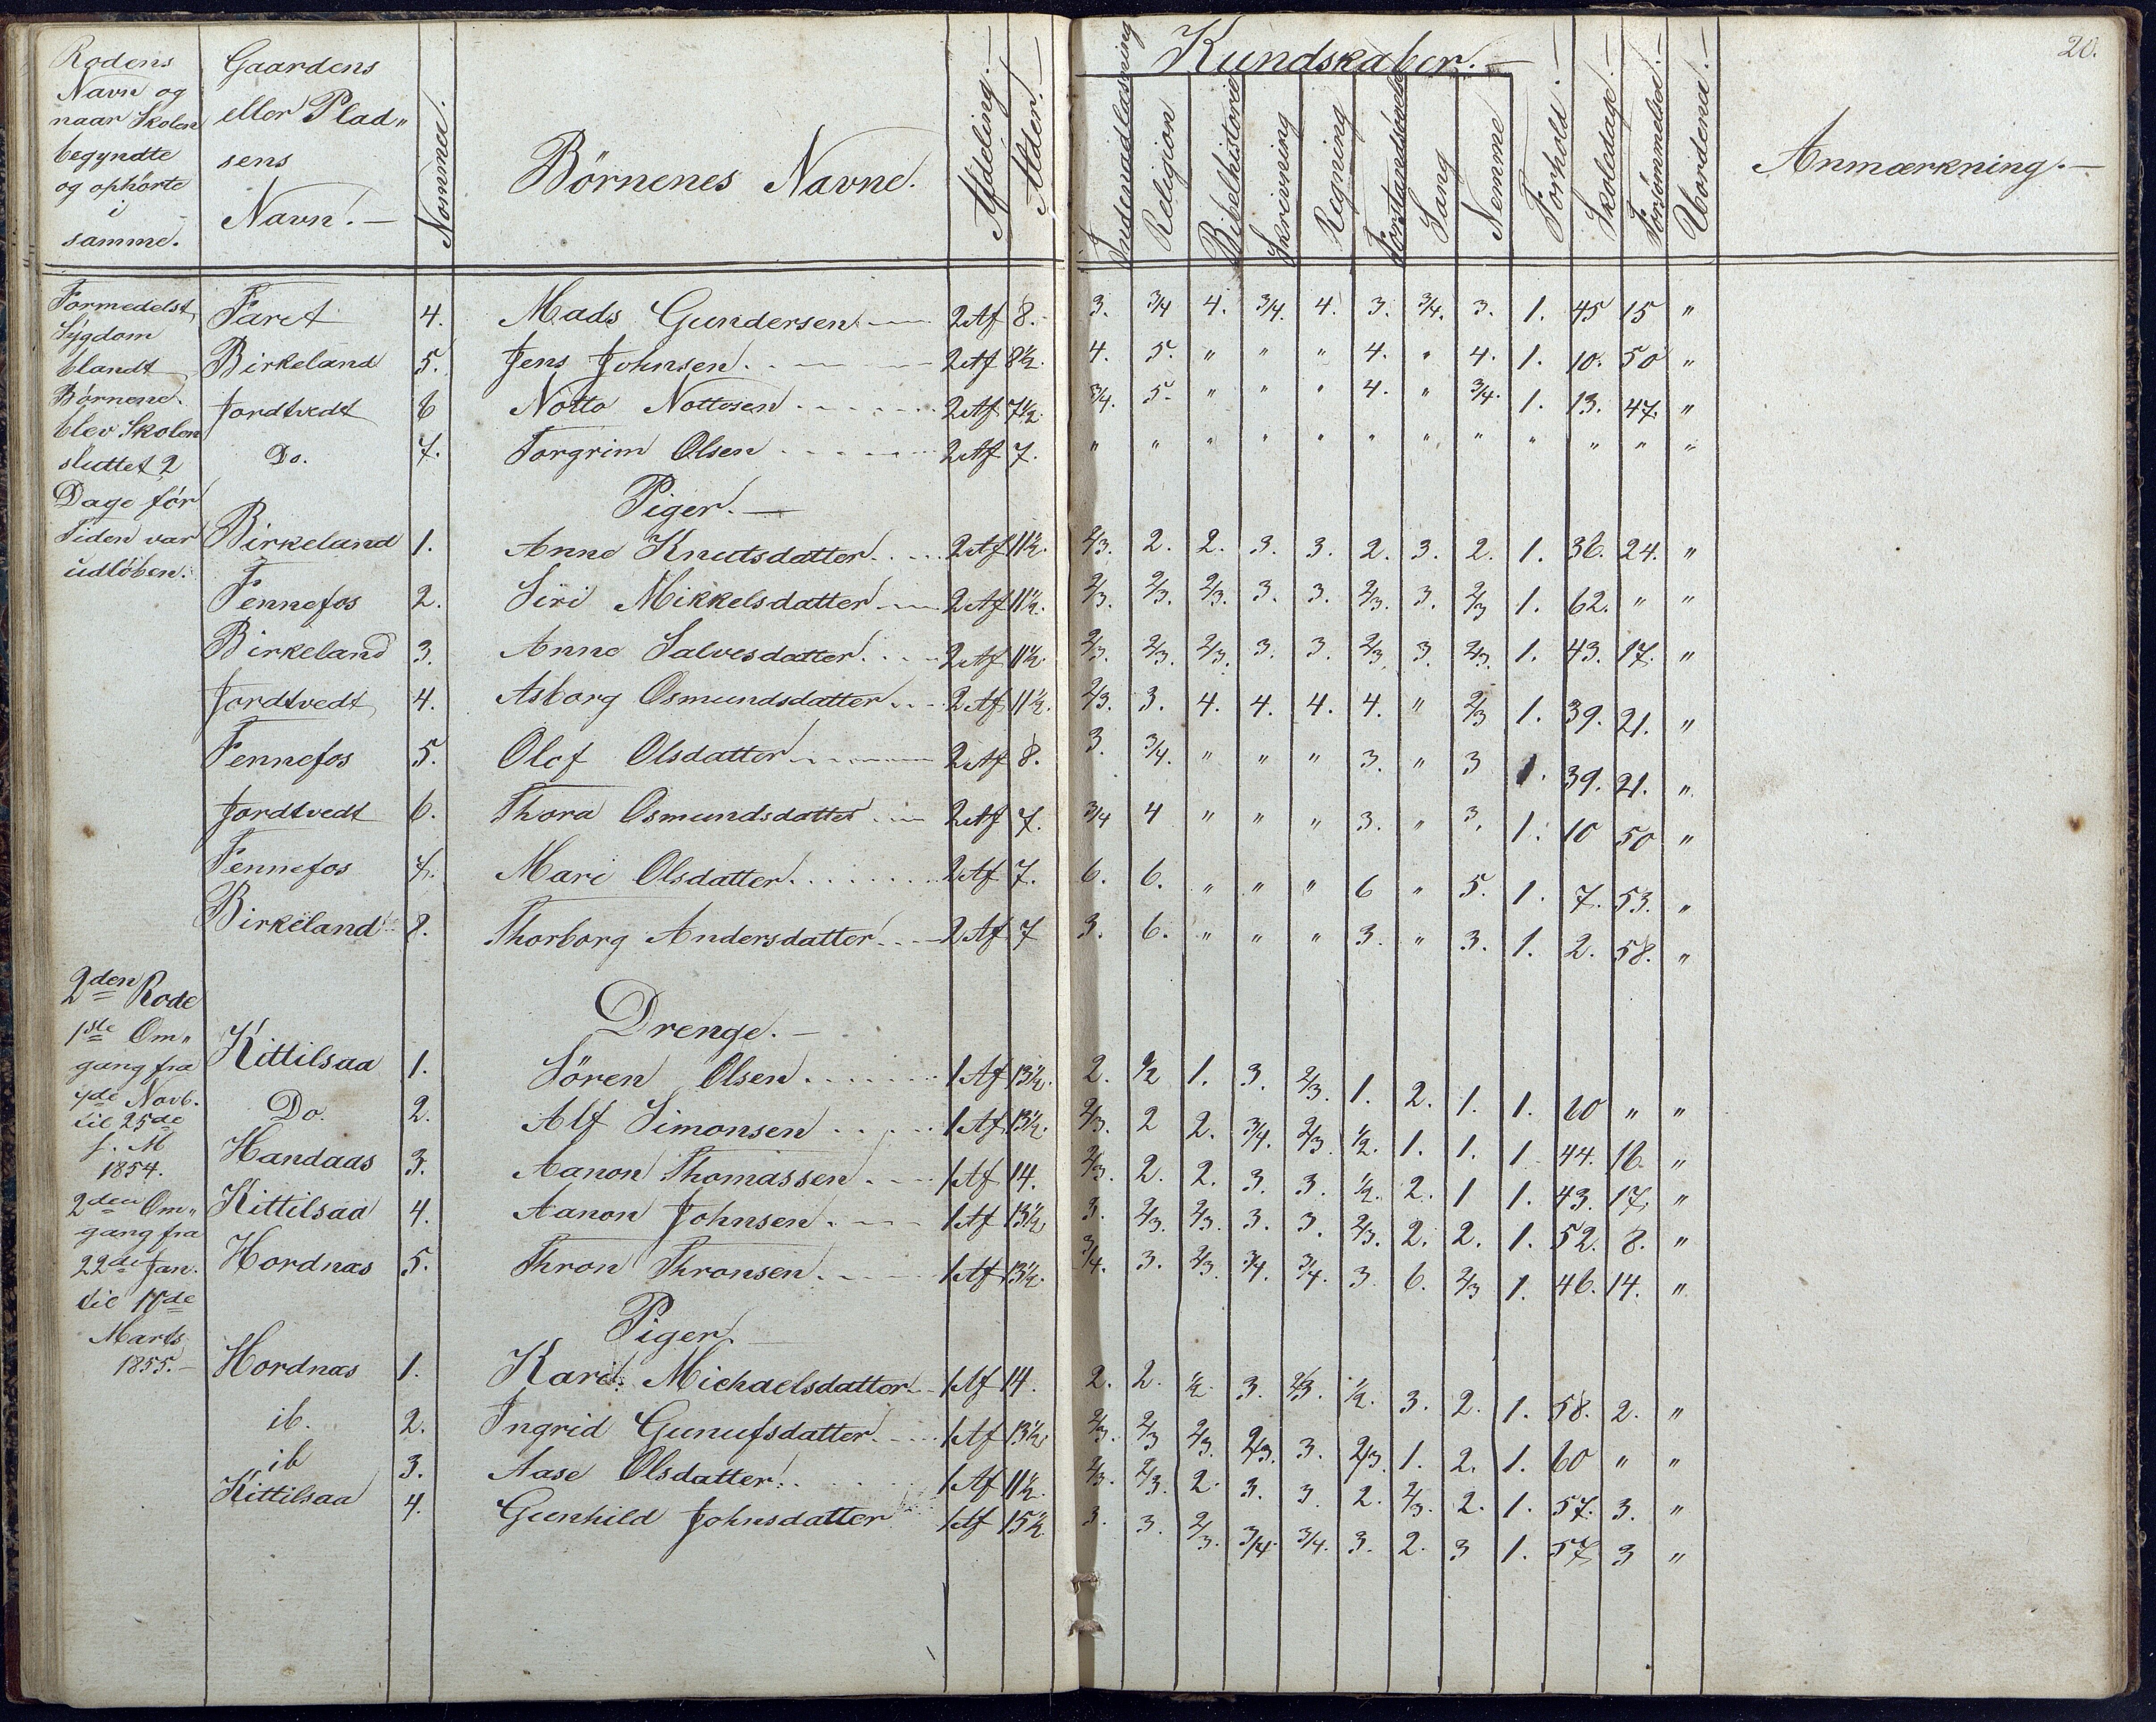 20.
Rodens Navn og naar Skolen begyndte og ophörte i samme. | Gaardens eller Plad„sens Navn. — | Nommer. | Börnenes Navne. | Afdeling. — | Alder. — | Kundskaber. — | Indenadlæsning | Religion | Bibelhistorie | Skrivning | Regning | Forstandsövelse | Sang | Nemme | Forhold. — | Skoledage. — | Forsömmelser. — | Uordener. — | Anmærkning. —
Formedelst
Sygdom
blandt
Börnene.
blev Skolen
sluttet 2
Dage för
Tiden var
udlöben.
Faret 4. Mads Gundersen 2 Af 8. 3. 3/4 4. 3/4. 4. 3. 3/4. 3. 1. 45 15 "
Birkeland 5. Jens Johnsen 2 Af 8½. 4. 5. " " " 4. " 4. 1. 10. 50 "
Jordtvedt 6 Notto Nottosen 2 Af 7½. 3/4. 5. " " " 4. " 3/4. 1. 13. 47. "
Do. 7. Torgrim Olsen 2 Af 7. " " " " " " " " " " " "
Piger. —
Birkeland 1. Anne Knutsdatter 2 Af 11½. 2/3. 2. 2. 3. 3. 2. 3. 2. 1. 36. 24. "
Fennefos 2. Siri Mikkelsdatter 2 Af 11½. 2/3. 2/3. 2/3. 3. 3. 2/3. 3. 2/3 1. 62. " "
Birkeland 3. Anne Salvesdatter 2 Af 11½. 2/3. 2/3. 2/3. 3. 3. 2/3 3. 2/3. 1. 43. 17. "
Jordtvedt 4. Asborg Osmundsdatter 2 Af 11½. 2/3. 3. 4. 4. 4. 4. " 2/3 1. 39. 21. "
Fennefos 5. Olef Olsdatter 2 Af 8. 3. 3/4. " " " 3. " 3 1. 39. 21. "
Jordtvedt 6. Thora Osmundsdatter 2 Af 7. 3/4 4 " " " 3. " 3. 1. 10 50 "
Fennefos 7. Mari Olsdatter 2 Af 7. 6. 6. " " " 6 " 5. 1. 7. 53. "
Birkeland 8. Thorborg Andersdatter 2 Af 7 3. 6. " " " 3. " 3. 1. 2. 58. "
2den Rode
1ste Om„
gang fra
til 25de
f. M
1854.
2den Om„
gang fra
22de Jan.
til 17de
Marts
1855. —
Drenge. —
Kittilsaa 1. Sören Olsen 1 Af 13½. 2. ½ 1. 3. 2/3. 1. 2. 1. 1. 60 " "
Do. 2. Alf Simonsen 1 Af 13½. 2/3. 2 2. 3/4. 2/3. ½. 1. 1. 1 44. 16. "
Handaas 3. Aanon Thomassen 1 Af 14. 2/3. 2. 2. 3. 3. ½. 2. 1 1. 43. 17. "
Kittilsaa 4. Aanon Johnsen 1 Af 13½ 3. 2/3. 2/3. 3. 3. 2/3. 2. 2. 1. 52. 8. "
Hordnæs 5. Thron Thronsen 1 Af 13½. 3/4. 3. 2/3. 3/4. 3/4. 3. 6. 2/3 1. 46. 14. "
Piger. —
Hordnæs 1. Kari Michaelsdatter 1 Af 14. 2. 2. ½. 3. 2/3. ½. 3. 2. 1. 58. 2. "
ib. 2. Ingrid Gunufsdatter 1 Af 13½ 2/3. 2/3 2/3. 2/3. 3. 2/3. 1. 2. 1. 60 " "
ib 3. Aase Olsdatter 1 Af 11½. 2/3. 2/3. 2. 3. 3. 2. 2/3. 2. 1. 57. 3. "
Kittilsaa 4. Gunhild Johnsdatter 1 Af 15½. 3. 3. 2/3. 3/4. 3/4. 3. 2. 3 1. 57. 3 "